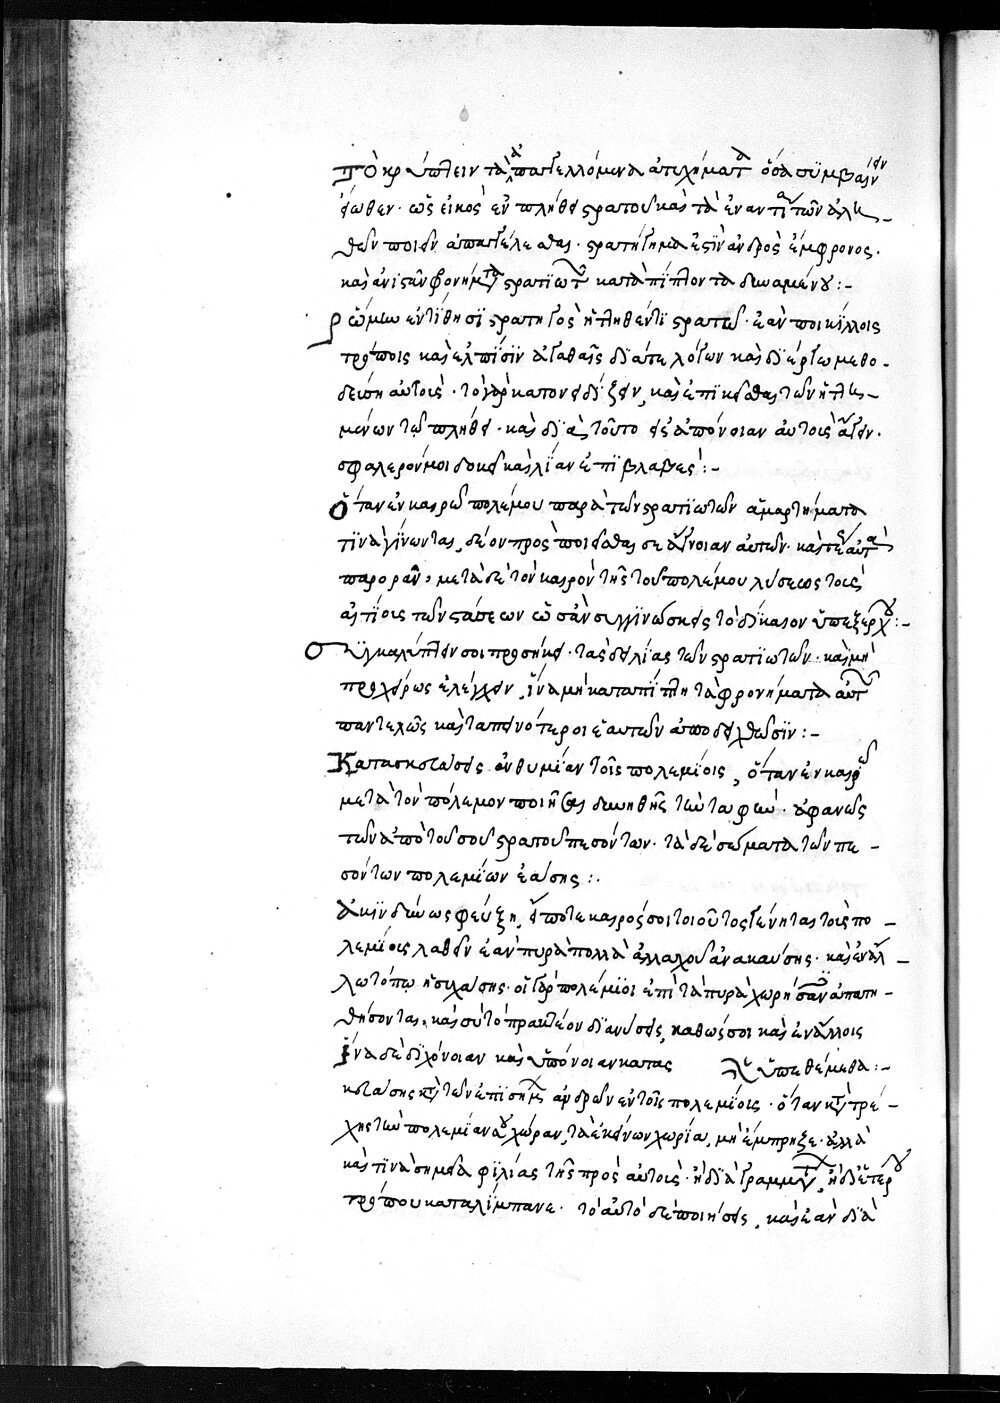 Τὸ κρύπτειν τὰ ἀπαγγελλόμενα ἀτυχήματα ὅσα συμβαίνειν
εἴωθεν· ὡς εἰκὸς ἐν πλήθει στρατοῦ καὶ τὰ ἐναντία τῶν ἀλη-
θῶν ποιεῖν ἀπαγγέλλεσθαι· στρατήγημά ἐστιν ἀνδρὸς ἔμφρονος·
καὶ ἀνιστᾶν φρονήματα στρατιωτῶν καταπίπτοντα δυναμένου:-
Ῥώμην ἐντίθησι στρατηγὸς ἡττηθέντι στρατῷ· ἐὰν ποικίλοις
τρόποις καὶ ἐλπίσιν ἀγαθαῖς διά τε λόγων καὶ δι' ἔργων μεθο-
δεύσῃ αὐτούς· τὸ γὰρ κατονειδίζειν, καὶ ἐπικεῖσθαι τῶν ἡττη-
μένων τῷ πλήθει· καὶ διὰ τοῦτο εἰς ἀπόνοιαν αὐτοὺς ἄγειν·
σφαλερόν μοι δοκεῖ καὶ λίαν ἐπιβλαβές:-
Ὅταν ἐν καιρῷ πολέμου παρὰ τῶν στρατιωτῶν ἁμαρτήματά
τινα γίνωνται, δέον προσποιεῖσθαί σε ἄγνοιαν αὐτῶν· καὶ τέως αὐτὰ
παρορᾶν, μετὰ δὲ τὸν καιρὸν τῆς τοῦ πολέμου λύσεως τοῖς
αἰτίοις τῶν στάσεων ὡς ἂν συγγινώσκεις τὸ δίκαιον ὑπεξέρχου:-
Συγκαλύπτειν σοι προσήκει· τὰς δειλίας τῶν στρατιωτῶν· καὶ μὴ
προχείρως ἐλέγχειν, ἵνα μὴ καταπίπτῃ τὰ φρονήματα αὐτῶν
παντελῶς καὶ ταπεινότεροι ἑαυτῶν ἀποδειχθῶσιν:-
Κατασκευάσεις ἀθυμίαν τοῖς πολεμίοις, ὅταν ἐν καιρῷ
μετὰ τὸν πόλεμον ποιῆσαι δυνηθῇς τὴν ταφὴν· ἀφανῶς
τῶν ἀπὸ τοῦ σοῦ στρατοῦ πεσόντων· τὰ δὲ σώματα τῶν πε-
σόντων πολεμίων ἐάσῃς:·
Ἀκινδύνως φεύξῃ, εἴποτε καιρός σοι τοιοῦτος γένηται τοὺς πο-
λεμίους λαθεῖν ἐὰν πυρὰ πολλὰ ἀλλαχοῦ ἀνακαύσῃς· καὶ ἐν ἄλ-
λῳ τόπῳ ἡσυχάσῃς· οἱ γὰρ πολέμιοι ἐπὶ τὰ πυρὰ χωρήσαντες ἀπατη-
θήσονται, καὶ σὺ τὸ πρακτέον διανύσεις, καθώς σοι καὶ ἐν ἄλλοις
Ἵνα δὲ διχόνοιαν καὶ ὑπόνοιαν κατας ὑπεθέμεθα:-
κευάσῃς κατὰ τῶν ἐπισήμων ἀνδρῶν ἐν τοῖς πολεμίοις· ὅταν κατατρέ-
χῃς τὴν πολεμίαν αὐτῶν χώραν, τὰ ἐκείνων χωρία, μὴ ἔμπρηζε· ἀλλὰ
καί τινα σημεῖα φιλίας τῆς πρὸς αὐτούς· ἢ διὰ γραμμάτων, ἢ δι' ἑτέρου
τρόπου καταλίμπανε· τὸ αὐτὸ δὲ ποιήσεις, καὶ ἐὰν διὰ